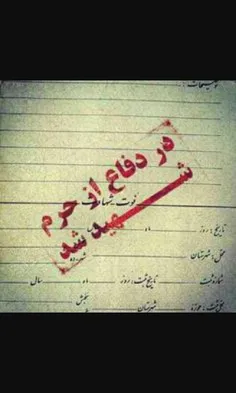 توضیحات:
در دفاع از حرم
شهید شد
فوت شهادت
تاریخ: روز ماه
محل: شهرستان
شماره ثبت تاریخ ثبت: روز ماه سال
محل ثبت: حوزه شهرستان بخش